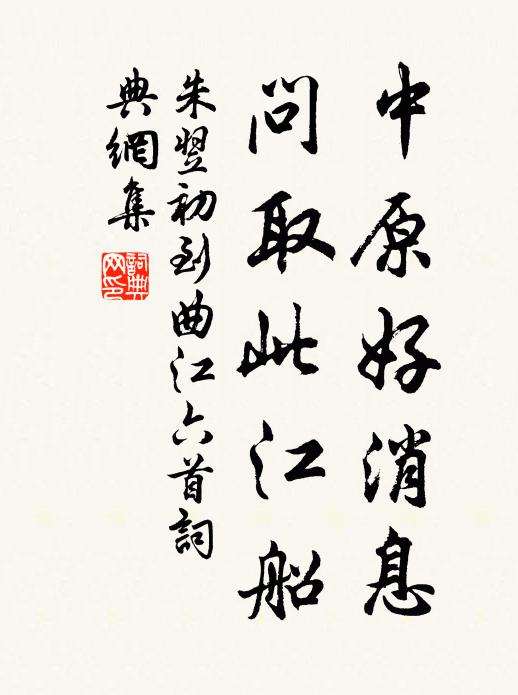 中原好消息
問取此江船
朱翌初到曲江六首詞
典網集
詞典網印